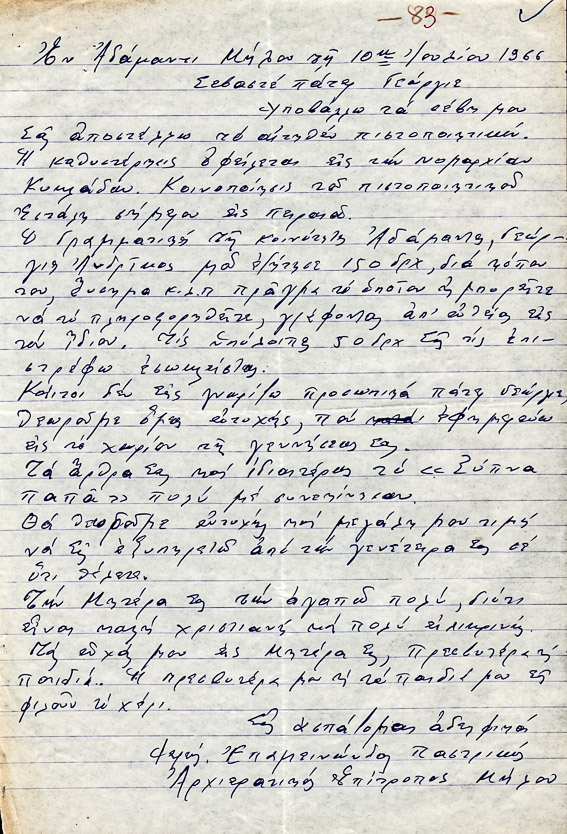 -83-
Ἐν Ἀδάμαντι Μήλου τῇ 10ῃ Ἰουλίου 1966
Σεβαστέ πάτερ Γεώργιε
Ὑποβάλλω τά σέβη μου
Σᾶς ἀποστέλλω τό αἰτηθέν πιστοποιητικόν.
Ἡ καθυστέρησις ὀφείλεται εἰς τήν Νομαρχίαν
Κυκλάδων. Κοινοποίησις τοῦ πιστοποιητικοῦ
ἐστάλη σήμερον εἰς Πειραιᾶ.
Ὁ Γραμματεύς τῆς κοινότητος Ἀδάμαντος, Γεώρ-
γιος μοῦ ἐζήτησε 150 δρχ, διά κόπον
του, ἔνσημα κ.λ.π πρᾶγμα τό ὁποῖον ἠμπορεῖτε
νά τό πληροφορηθεῖτε, γράφοντας ἀπ' εὐθείας εἰς
τόν ἴδιον. Τάς ὑπολοίπους 50 δρχ Σᾶς τάς ἐπι-
στρέφω ἐσωκλείστως.
Καίτοι δέν Σᾶς γνωρίζω προσωπικά πάτερ Γεώργιε,
θεωροῦμε ὅμως εὐτυχής, πού ἐφημερεύω
εἰς τό χωρίον τῆς γεννήσεώς Σας.
Τά ἄρθρα Σας καί ἰδιαιτέρως τό << Ξύπνα
παπᾶ >> πολύ μέ συνεκίνησαν.
Θά θεωροῦμε εὐτυχής καί μεγάλη μου τιμή
νά Σᾶς ἐξυπηρετῶ ἀπό τήν γενέτειρά Σας σέ
ὅτι θέλετε.
Τήν Μητέρα Σας τήν ἀγαπῶ πολύ, διότι
εἶναι καλή χριστιανή καί πολύ εἰλικρινής.
Τάς εὐχάς μου εἰς Μητέρα Σας, πρεσβυτέρα καί
παιδιά. Ἡ πρεσβυτέρα μου καί τά παιδιά μου Σᾶς
φιλοῦν τό χέρι.
Σᾶς ἀσπάζομαι ἀδελφικά
Ἐπαμεινώνδας Παστρικός
Ἀρχιερατικός Ἐπίτροπος Μήλου